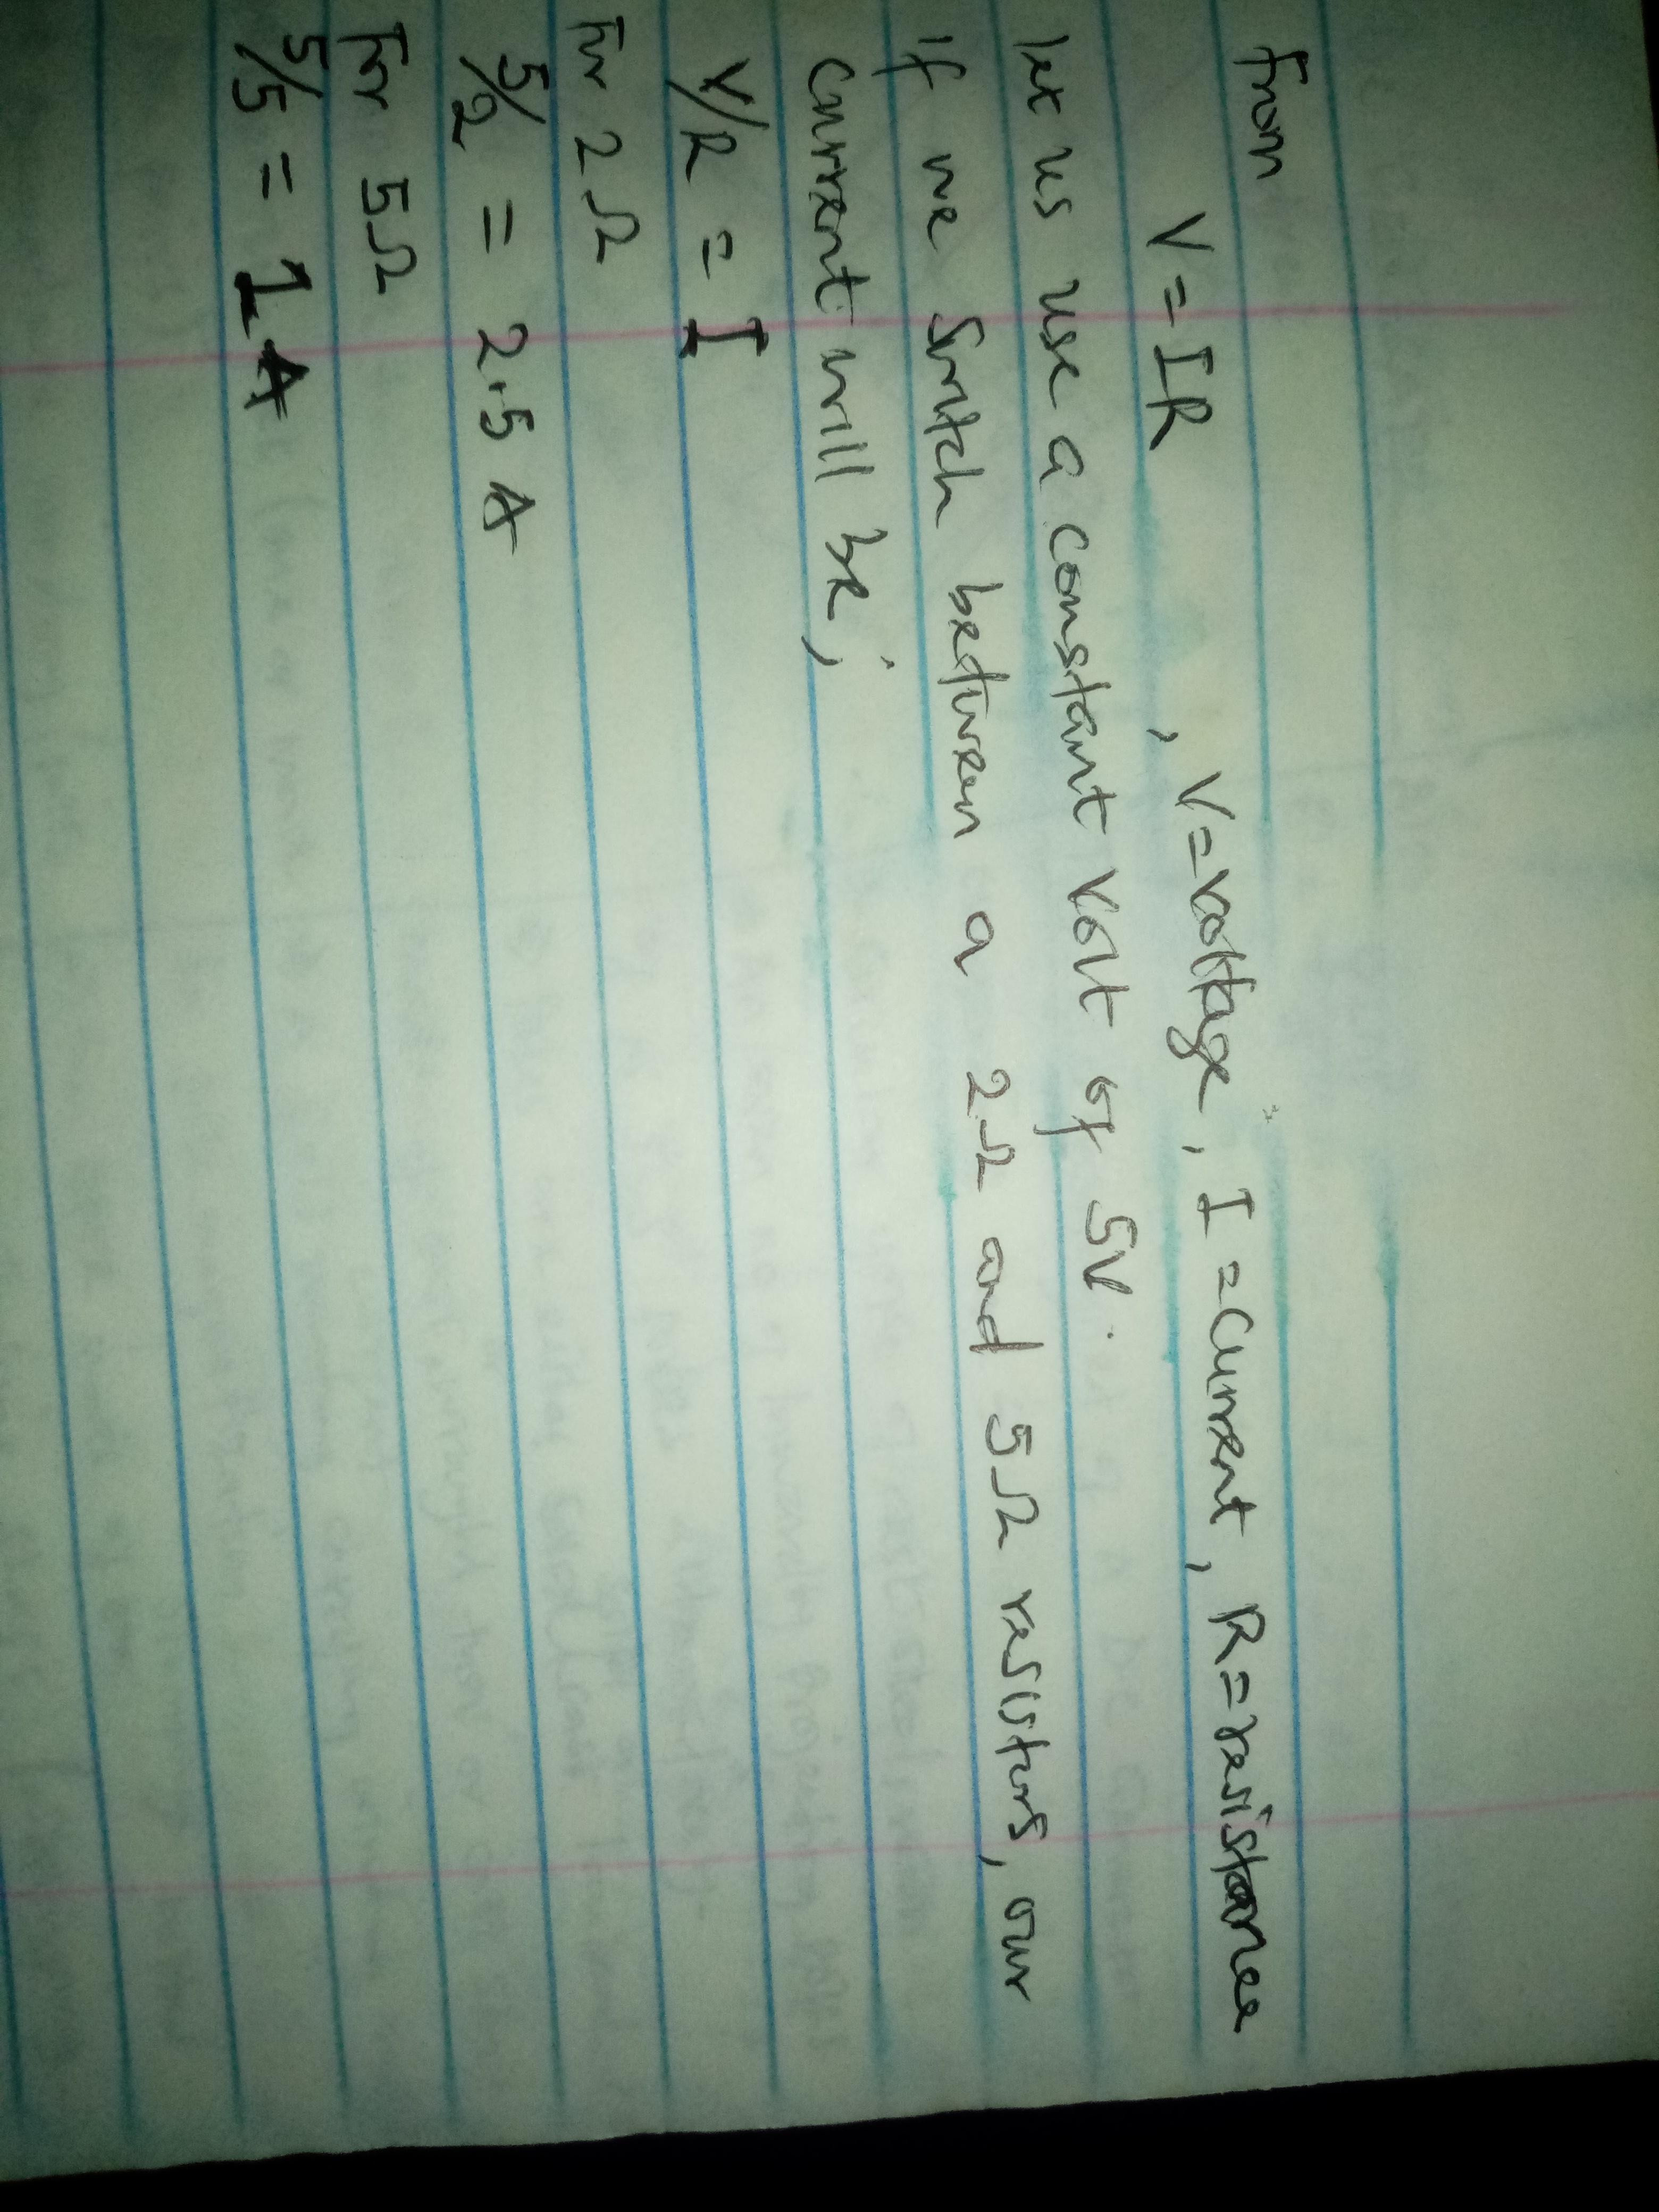 from
V = IR , V = voltage, I = current, R = resistance
let us use a constant volt of 5V.
if we switch between a 2Ω and 5Ω resistors, our
current will be;
V/R = I
For 2Ω
5/2 = 2.5 A
For 5Ω
5/5 = 1 A